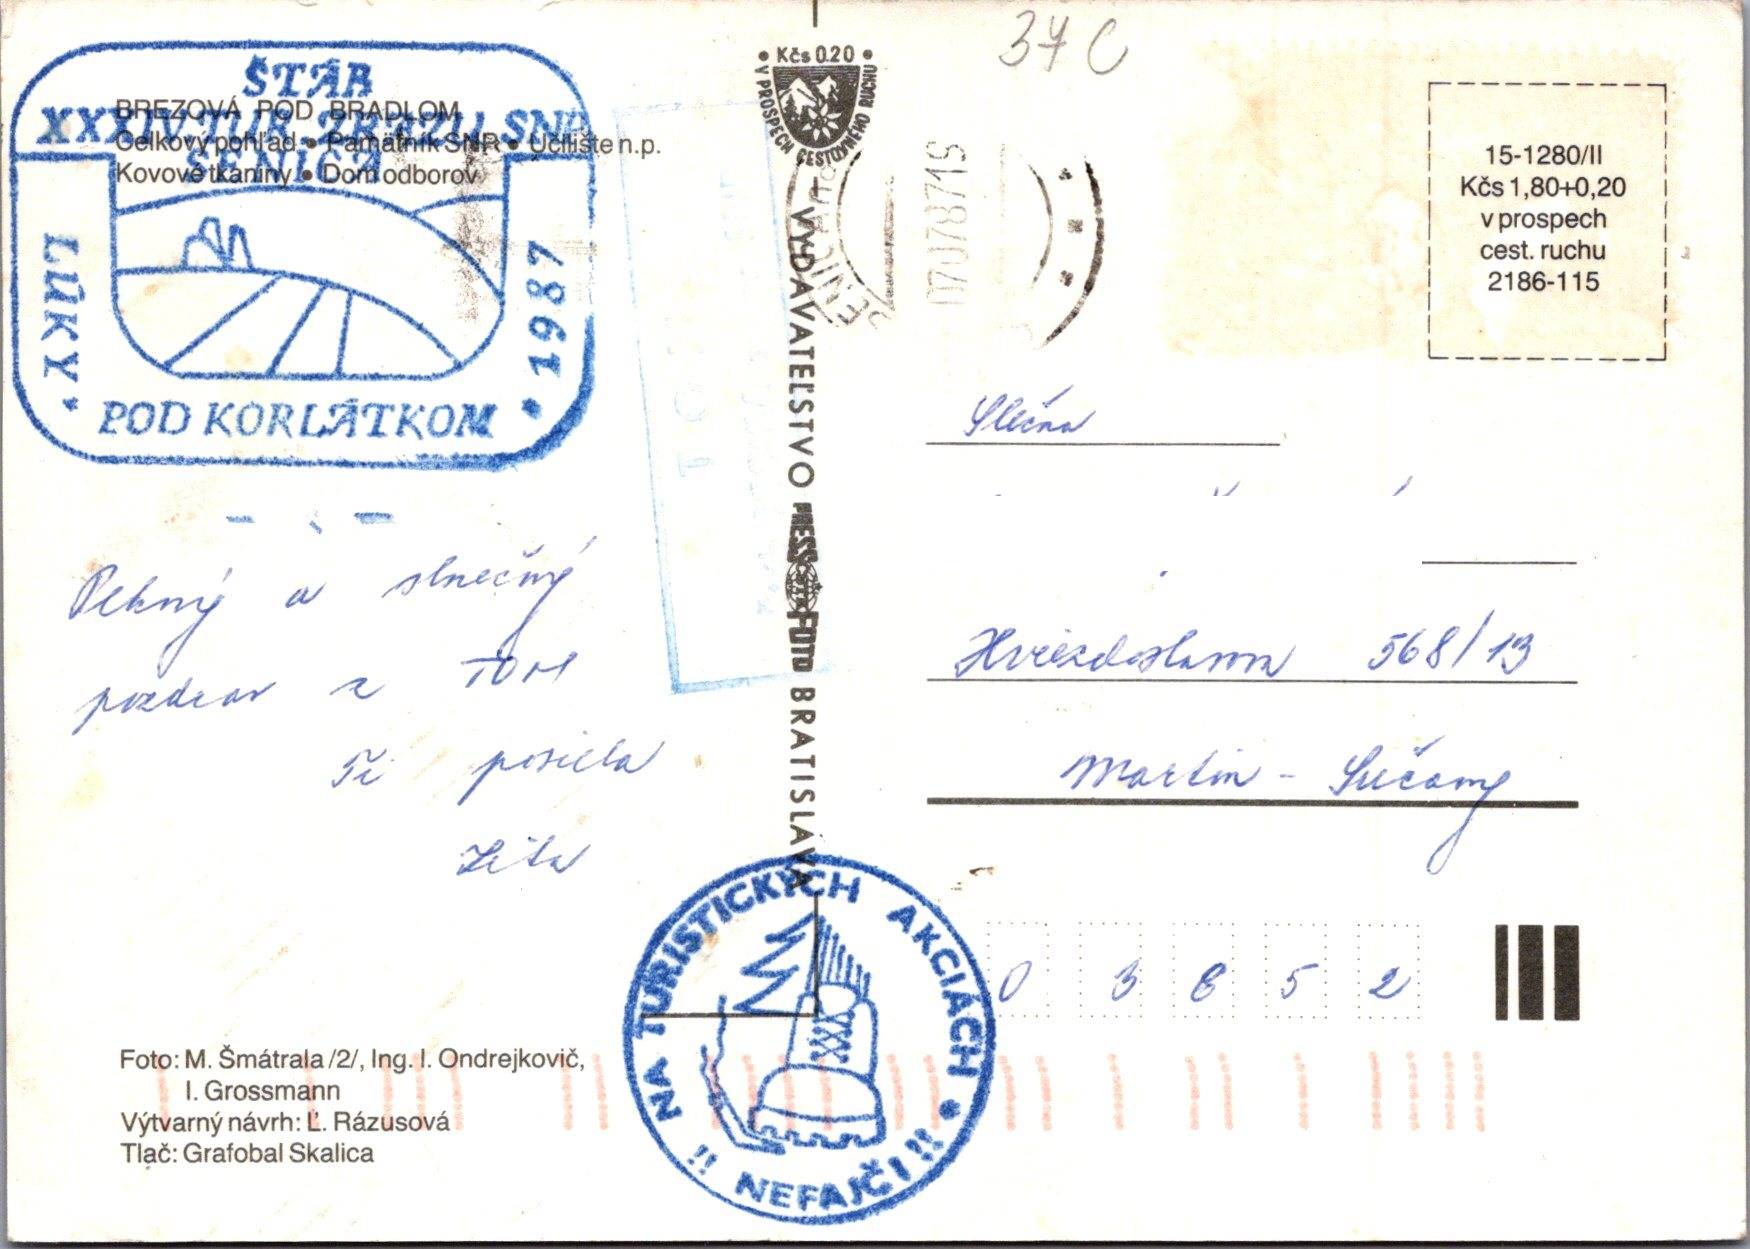 37 C
ŠTÁB
XXXIV. TUR. ZRAZU SNP
SENICA
LÚKY
POD KORLÁTKOM
* 1987
BREZOVÁ POD BRADLOM
Celkový pohľad • Pamätník SNR • Učilište n.p.
Kovové tkaniny • Dom odborov
• Kčs 0.20 •
V PROSPECH CESTOVNÉHO RUCHU
SENICA
070787 1S
15-1280/II
Kčs 1,80+0,20
v prospech
cest. ruchu
2186-115
VYDAVATEĽSTVO PRESSFOTO BRATISLAVA
Pekný a slnečný
pozdrav z TOM
Ti posiela
Zita
Slečna
Hviezdoslavova 568/13
Martin - Sučany
0 3 8 5 2
NA TURISTICKÝCH AKCIÁCH *
!! NEFAJČI !!
Foto: M. Šmátrala /2/, Ing. I. Ondrejkovič,
I. Grossmann
Výtvarný návrh: Ľ. Rázusová
Tlač: Grafobal Skalica